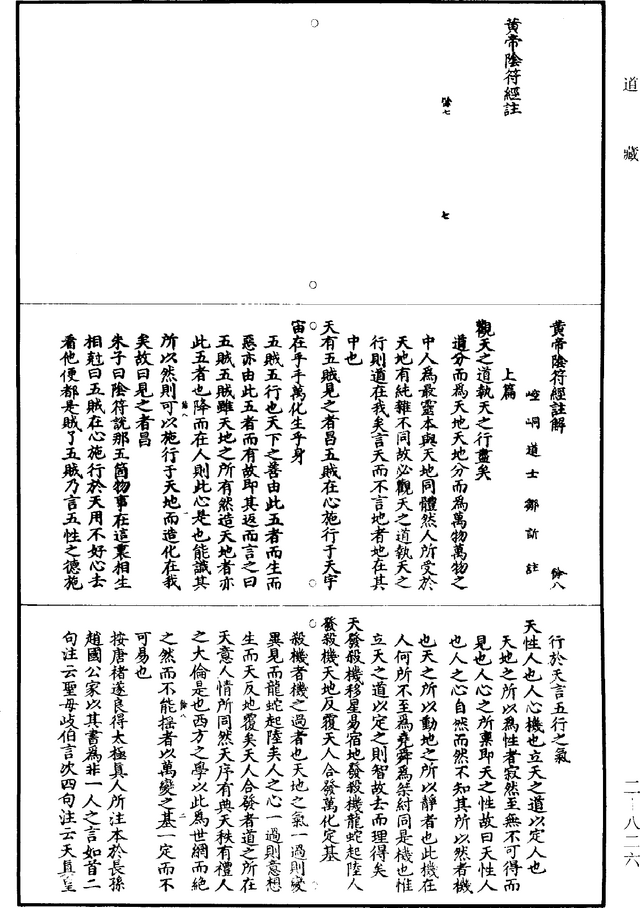 道藏
黃帝陰符經註
餘七
七
黃帝陰符經註解
餘八
崆峒道士鄒訢註
上篇
觀天之道執天之行盡矣
道分而為天地天地分而為萬物萬物之
中人為最靈本與天地同體然人所受於
天地有純雜不同故必觀天之道執天之
行則道在我矣言天而不言地者地在其
中也
天有五賊見之者昌五賊在心施行于天宇
宙在乎手萬化生乎身
五賊五行也天下之善由此五者而生而
惡亦由此五者而有故即其返而言之曰
五賊五賊雖天地之所有然造天地者亦
此五者也降而在人則此心是也能識其
所以然則可以施行于天地而造化在我
矣故曰見之者昌
朱子曰陰符說那五箇物事在這裏相生
相尅曰五賊在心施行於天用不好心去
看他便都是賊了五賊乃言五性之德施
行於天言五行之氣
天性人也人心機也立天之道以定人也
天地之所以為性者寂然至無不可得而
見也人心之所稟即天之性故曰天性人
也人之心自然而然不知其所以然者機
也天之所以動地之所以靜者也此機在
人何所不至為堯舜為桀紂同是機也惟
立天之道以定之則智故去而理得矣
天發殺機移星易宿地發殺機龍蛇起陸人
發殺機天地反覆天人合發萬化定基
殺機者機之過者也天地之氣一過則變
異見而龍蛇起陸矣人之心一過則意想
生而天反地覆矣天人合發者道之所在
天意人情所同然天序有典天秩有禮人
之大倫是也西方之學以此為世網而絕
之然而不能搖者以萬變之基一定而不
可易也
按唐褚遂良得太極真人所注本於長孫
趙國公家以其書為非一人之言如首二
句注云聖母歧伯言次四句注云天真皇
二－八二六